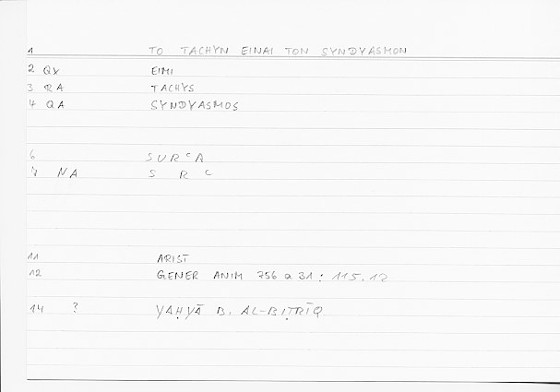 1 TO TACHYN EINAI TON SYNDYASMON
2 QX EIMI
3 RA TACHYS
4 QA SYNDYASMOS
6 SURᶜA
7 NA S R ᶜ
11 ARIST
12 GENER ANIM 756 a 31 : 115.17
14 ? YAḤYĀ B. AL-BIṬRĪQ